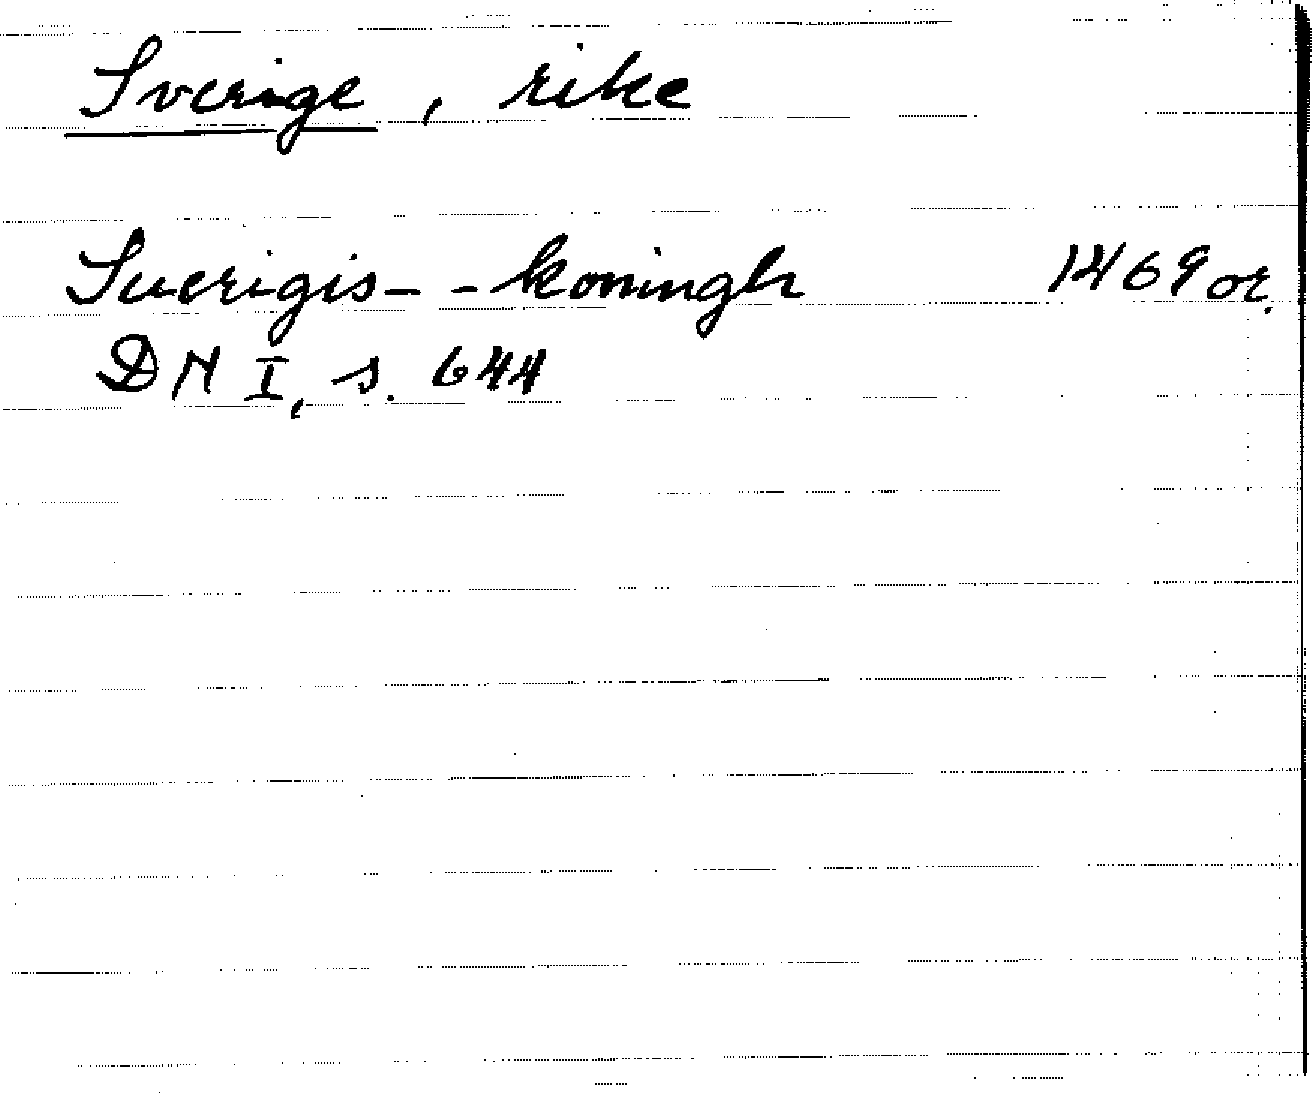 Sverige, rike
Suerigis - - koningh 1469 or.
DN I, s. 644